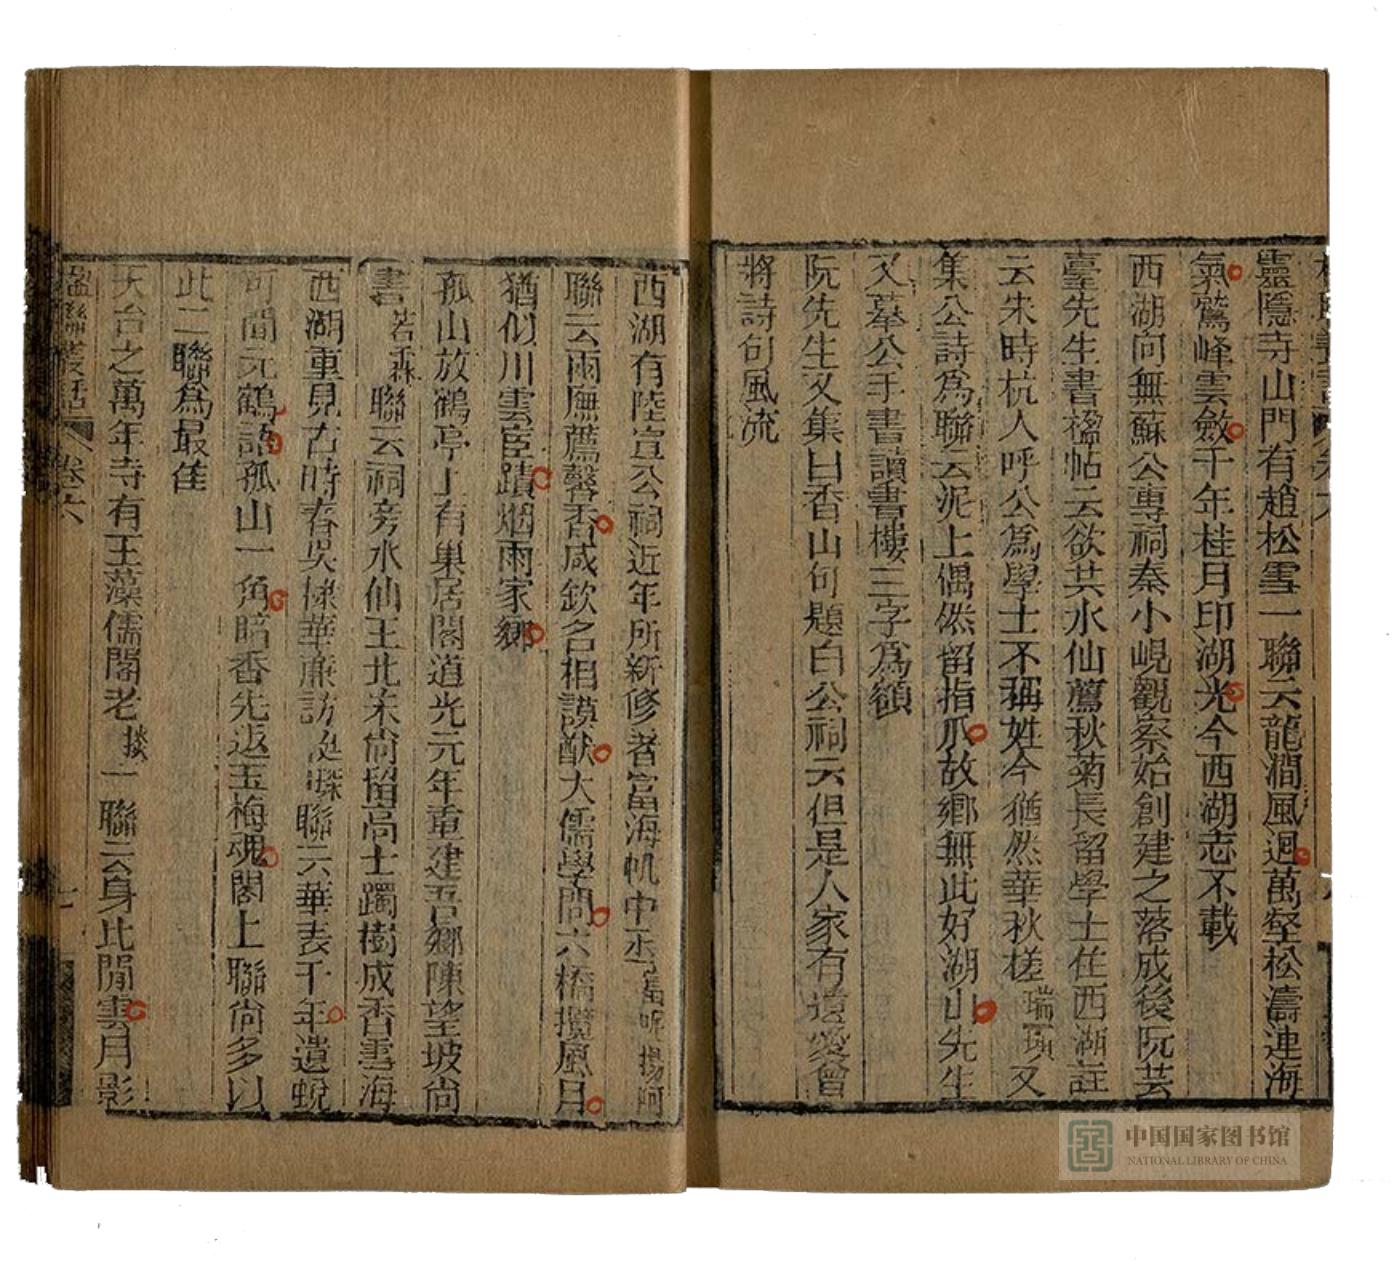 靈隱寺山門有趙松雪一聯云龍澗風迴萬壑松濤連海
氣鷲峰雲斂千年桂月印湖光今西湖志不載
西湖向無蘇公專祠秦小峴觀察始創建之落成後阮芸
臺先生書楹帖云欲共水仙薦秋菊長留學士住西湖註
云朱時杭人呼公為學士不稱姓今猶然華秋槎瑞璜又
集公詩為聯云泥上偶然留指爪故鄉無此好湖山先生
又摹公手書讀書樓三字為額
阮先生又集白香山句題白公祠云但是人家有遺愛曾
將詩句風流
西湖有陸宣公祠近年所新修者富海帆中丞富呢揚阿
聯云雨廡薦馨香咸欽名相謨猷大儒學問六橋攬風月
猶似川雲宦蹟烟雨家鄉
孤山放鶴亭上有巢居閣道光元年重建吾鄉陳望坡尚
書若霖聯云祠旁水仙王北宋尚留高士躅樹成香雪海
西湖重見古時春吳棣華廉訪廷琛聯云華表千年遺蛻
可聞元鶴語孤山一角暗香先返玉梅魂閣上聯尚多以
此二聯為最佳
天台之萬年寺有王藻儒閣老掞一聯云身此閒雲月影
楹聯叢話 卷六
七
中国国家图书馆
NATIONAL LIBRARY OF CHINA